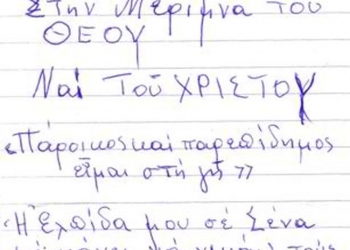 Στην Μέριμνα του
ΘΕΟΥ
Ναί ΤΟῦ ΧΡΙΣΤΟΥ
«Πάροικος καί παρεπίδημος
εἶμαι στή γῆ»
«Ἡ ἐλπίδα μου σέ Σένα